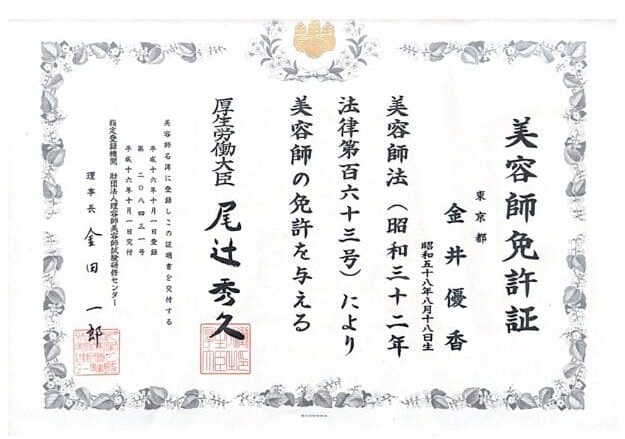 美容師免許証
東京都
金井優香
昭和五十八年八月十八日生
美容師法（昭和三十二年
法律第百六十三号）により
美容師の免許を与える
厚生労働大臣 尾辻秀久
美容師名簿に登録しこの証明書を交付する
平成十六年十月一日登録
第二〇八四三一号
平成十六年十月一日交付
指定登録機関 財団法人理容師美容師試験研修センター
理事長 金田一郎